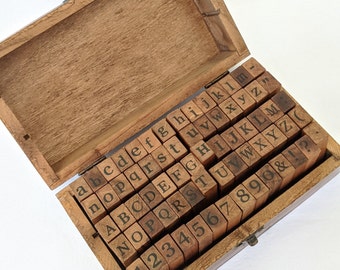 a b c d e f g h i j k l m -
n o p q r s t u v w x y z "
A B C D E F G H I J K L M
N O P Q R S T U V W X Y Z (
1 2 3 4 5 6 7 8 9 0 & ?